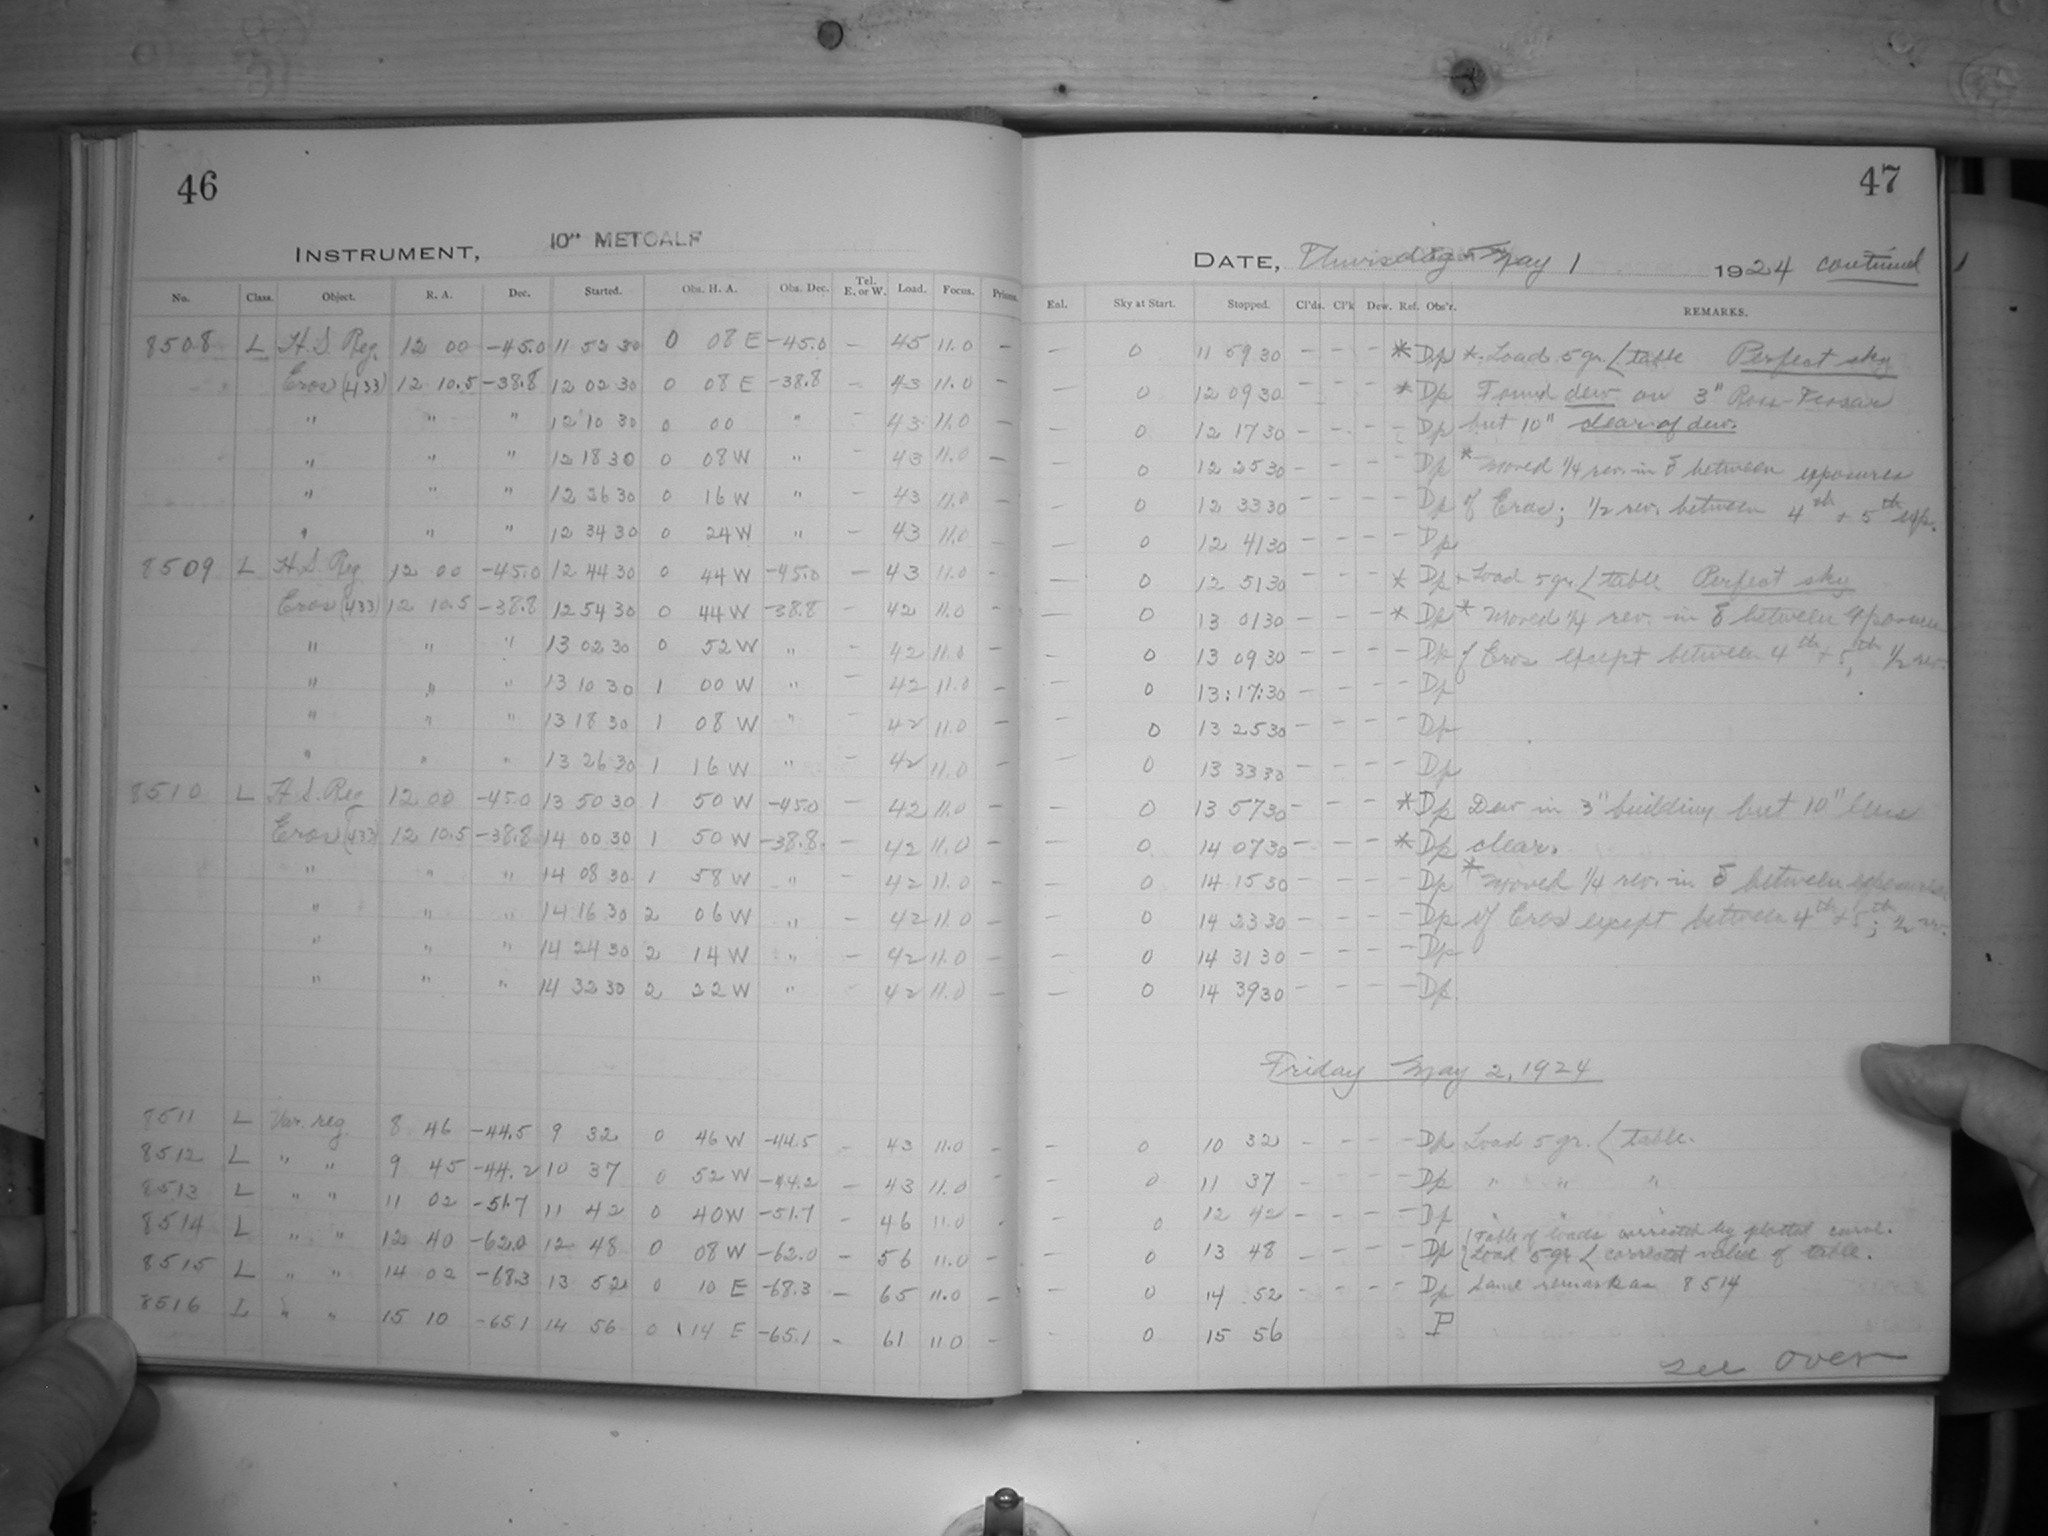 46
INSTRUMENT, 10" METCALF
No. Class. Object. R. A. Dec. Started. Obs. H. A. Obs. Dec. Tel. E. or W. Load. Focus. Prisms.
8508 L H.S. Reg. 12 00 -45.0 11 52 30 0 08 E -45.0 — 45 11.0 —
Eros (433) 12 10.5 -38.8 12 02 30 0 08 E -38.8 — 43 11.0 —
" " " 12 10 30 0 00 " — 43 11.0 —
" " " 12 18 30 0 08 W " — 43 11.0 —
" " " 12 26 30 0 16 W " — 43 11.0 —
" " " 12 34 30 0 24 W " — 43 11.0 —
8509 L H.S. Reg 12 00 -45.0 12 44 30 0 44 W -45.0 — 43 11.0 —
Eros (433) 12 10.5 -38.8 12 54 30 0 44 W -38.8 — 42 11.0 —
" " " 13 02 30 0 52 W " — 42 11.0 —
" " " 13 10 30 1 00 W " — 42 11.0 —
" " " 13 18 30 1 08 W " — 42 11.0 —
" " " 13 26 30 1 16 W " — 42 11.0 —
8510 L H.S. Reg 12 00 -45.0 13 50 30 1 50 W -45.0 — 42 11.0 —
Eros (433) 12 10.5 -38.8 14 00 30 1 50 W -38.8 — 42 11.0 —
" " " 14 08 30 1 58 W " — 42 11.0 —
" " " 14 16 30 2 06 W " — 42 11.0 —
" " " 14 24 30 2 14 W " — 42 11.0 —
" " " 14 32 30 2 22 W " — 42 11.0 —
8511 L Var. reg. 8 46 -44.5 9 32 0 46 W -44.5 — 43 11.0 —
8512 L " " 9 45 -44.2 10 37 0 52 W -44.2 — 43 11.0 —
8513 L " " 11 02 -51.7 11 42 0 40 W -51.7 — 46 11.0 —
8514 L " " 12 40 -62.0 12 48 0 08 W -62.0 — 56 11.0 —
8515 L " " 14 02 -68.3 13 52 0 10 E -68.3 — 65 11.0 —
8516 L " " 15 10 -65.1 14 56 0 14 E -65.1 — 61 11.0 —
47
DATE, Thursday May 1 1924 continued
Enl. Sky at Start. Stopped. Cl'ds. Cl'k Dew. Ref. Obs'r. REMARKS.
— 0 11 59 30 — — — * Dp *. Load 5 gr. < table Perfect sky
— 0 12 09 30 — — — * Dp Found dew on 3" Ross-Tessar
— 0 12 17 30 — — — — Dp but 10" clear of dew.
— 0 12 25 30 — — — — Dp * Moved 1/4 rev. in δ between exposures
— 0 12 33 30 — — — — Dp of Eros; 1/2 rev. between 4th + 5th exp.
— 0 12 41 30 — — — — Dp
— 0 12 51 30 — — — * Dp Load 5 gr. < table Perfect sky
— 0 13 01 30 — — — * Dp * Moved 1/4 rev. in δ between exposures
— 0 13 09 30 — — — — Dp of Eros except between 4th + 5th, 1/2 rev.
— 0 13:17:30 — — — — Dp
— 0 13 25 30 — — — — Dp
— 0 13 33 30 — — — — Dp
— 0 13 57 30 — — — * Dp Dew in 3" building but 10" lens
— 0 14 07 30 — — — * Dp clear.
— 0 14 15 30 — — — — Dp * Moved 1/4 rev. in δ between exposures
— 0 14 23 30 — — — — Dp of Eros except between 4th + 5th; 1/2 rev.
— 0 14 31 30 — — — — Dp
— 0 14 39 30 — — — — Dp
Friday May 2, 1924
— 0 10 32 — — — — Dp Load 5 gr. < table.
— 0 11 37 — — — — Dp " " "
— 0 12 42 — — — — Dp " " "
— 0 13 48 — — — — Dp { Table of loads corrected by plotted curve.
Load 5 gr < corrected value of table.
— 0 14 52 — — — — Dp Same remark as 8514
— 0 15 56 P
see over